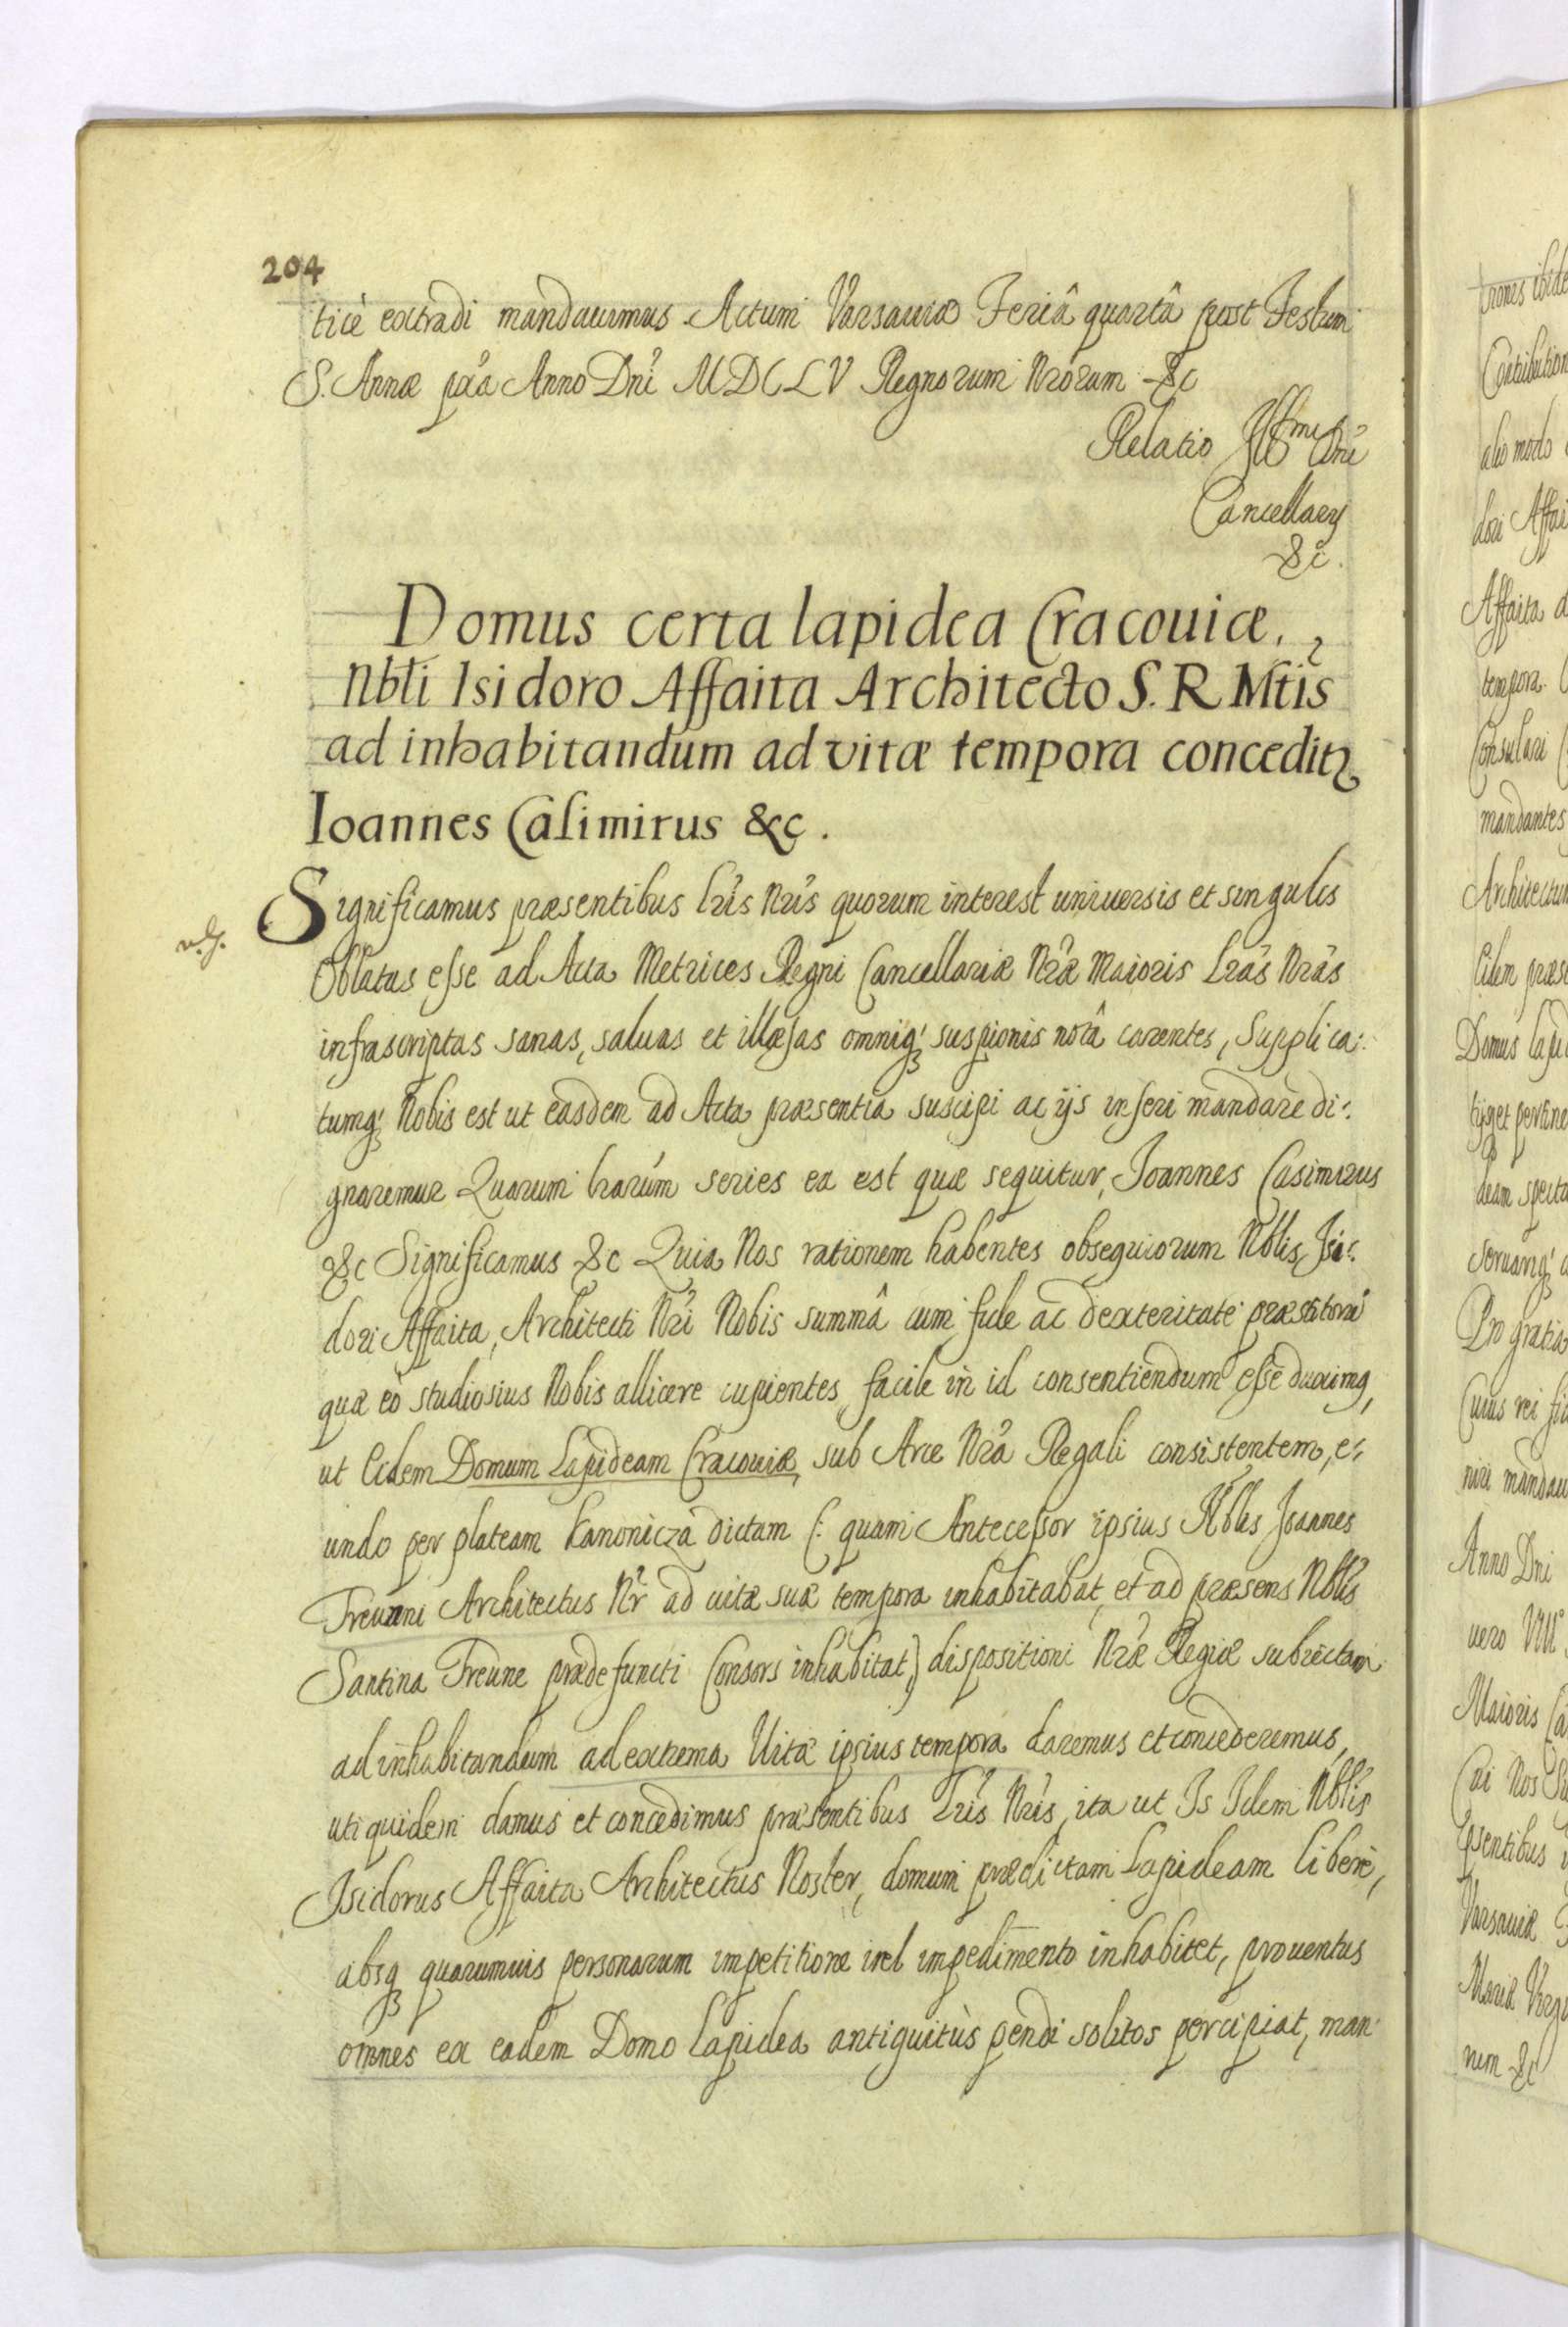 204
ticè extradi mandauimus. Actum Varsauiæ Feriâ quartâ post Festum
S. Annæ pxa Anno Dni MDCLV Regnorum Nrorum &c
Relatio Illmi Dni
Cancellarÿ
&c.
Domus certa lapidea Cracouiæ.,
Nbli Isidoro Affaita Architecto S. R Mtis
ad inhabitandum ad vitæ tempora conceditz
Ioannes Casimirus &c.
Significamus præsentibus lris Nris quorum interest uniuersis et singulis
Oblatas esse ad Acta Metrices Regni Cancellariæ Nræ Maioris Lras Nras
infrascriptas sanas, saluas et illæsas omniq; suspionis notâ carentes, Supplica:
tumq; Nobis est ut easdem ad Acta præsentia suscipi ac ijs inseri mandare di:
gnaremur Quarum lrarum series ea est quæ sequitur, Joannes Casimirus
&c Significamus &c Quia Nos rationem habentes obsequiorum Nblis Isi:
dori Affaita, Architecti Nri Nobis summâ cum fide ac dexteritate præstitorũ
quæ eò studiosius Nobis allicere cupientes, facile in id consentiendum esse duximq,
ut Eidem Domum Lapideam Cracouiæ, sub Arce Nra Regali consistentem, e:
undo per plateam Kanonicza dictam (: quam Antecessor ipsius Nblis Joannes
Treunni Architectus Nr ad uitæ suæ tempora inhabitabat, et ad præsens Nblis
Santina Treune prædefuncti Consors inhabitat,) dispositioni Nræ Regiæ subiectam
ad inhabitandum ad extrema Uitæ ipsius tempora daremus et concederemus,
uti quidem damus et concedimus præsentibus Lris Nris, ita ut Is Idem Nblis
Isidorus Affaita Architectus Noster, domum prædictam Lapideam liberè,
absq; quarumuis personarum impetitione vel impedimento inhabitet, prouentus
omnes ex eadem Domo Lapidea antiquitùs pendi solitos percipiat, man